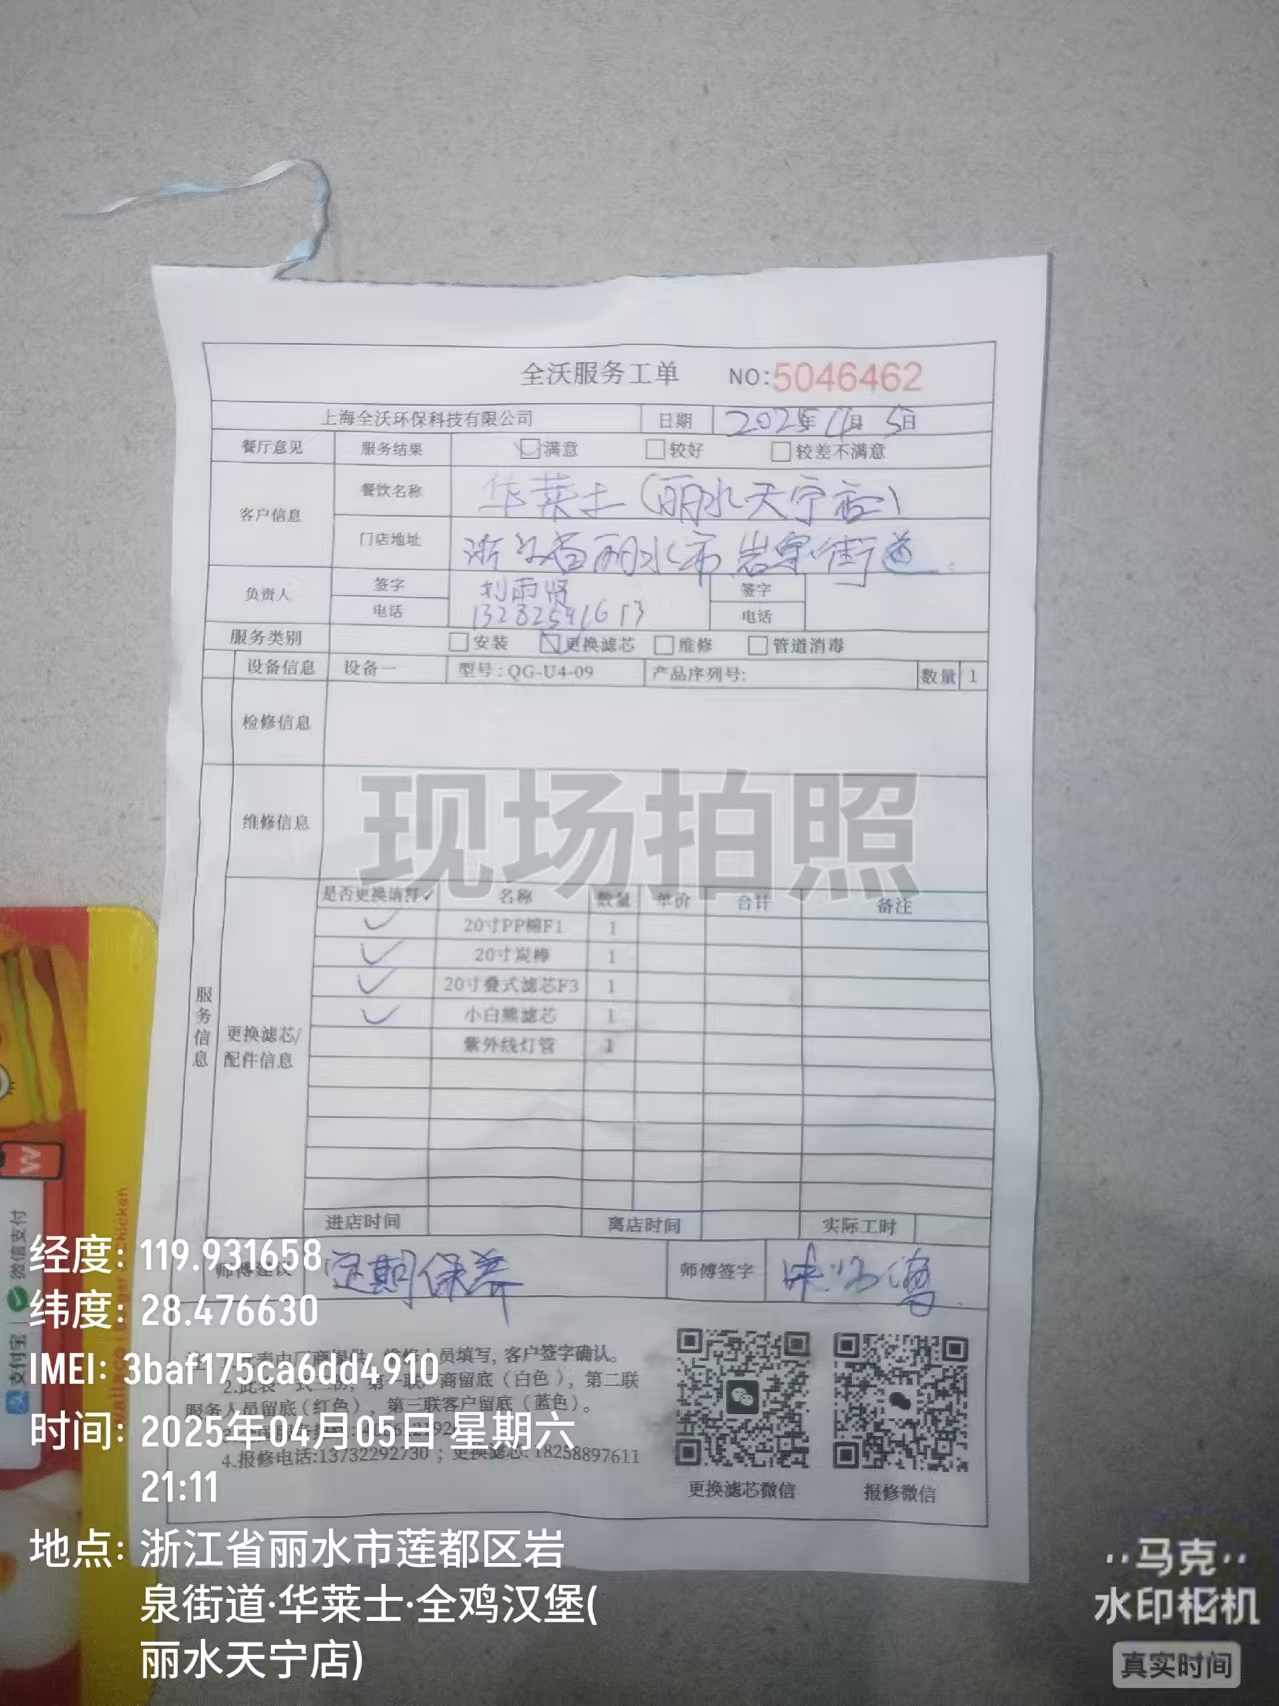 全沃服务工单 NO:5046462
上海全沃环保科技有限公司 日期 2025年4月5日
餐厅意见 服务结果 满意 较好 较差不满意
客户信息 餐饮名称 华莱士(丽水天宁店)
门店地址 浙江省丽水市岩泉街道
负责人 签字 刘雨 签字
电话 电话
服务类别 安装 更换滤芯 维修 管道消毒
设备信息 设备一 型号:QG-U4-09 产品序列号: 数量 1
检修信息
维修信息
现场拍照
是否更换请打✓ 名称 数量 单价 合计 备注
✓ 20寸PP棉F1 1
✓ 20寸炭棒 1
✓ 20寸叠式滤芯F3 1
✓ 小白熊滤芯 1
紫外线灯管 1
服务信息
更换滤芯/
配件信息
进店时间 离店时间 实际工时
师傅建议 定期保养 师傅签字
员填写, 客户签字确认。
商留底(白色), 第二联
服务人员留底(红色), 第三联客户留底(蓝色)。
4.报修电话:13732292730 ; 更换滤芯: 18258897611
更换滤芯微信 报修微信
微信支付
支付宝
经度: 119.931658
纬度: 28.476630
IMEI: 3baf175ca6dd4910
时间: 2025年04月05日 星期六
21:11
地点: 浙江省丽水市莲都区岩
泉街道·华莱士·全鸡汉堡(
丽水天宁店)
马克
水印相机
真实时间